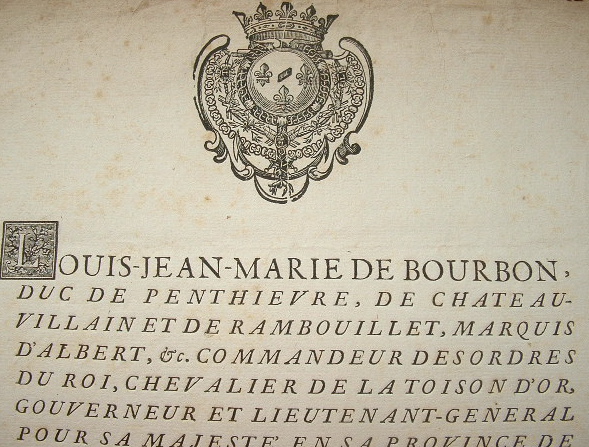 LOUIS-JEAN-MARIE DE BOURBON,
DUC DE PENTHIEVRE, DE CHATEAU-
VILLAIN ET DE RAMBOUILLET, MARQUIS
D'ALBERT, &c. COMMANDEUR DES ORDRES
DU ROI, CHEVALIER DE LA TOISON D'OR,
GOUVERNEUR ET LIEUTENANT-GENERAL
POUR SA MAJESTE' EN SA PROVINCE DE